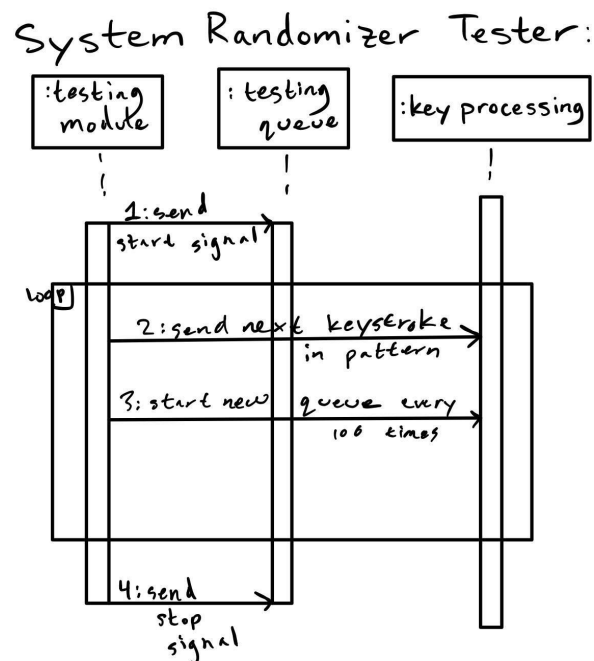 System Randomizer Tester:
:testing
module
: testing
queue
:key processing
1:send
start signal
loop
2:send next keystroke
in pattern
3: start new queue every
100 times
4:send
stop
signal